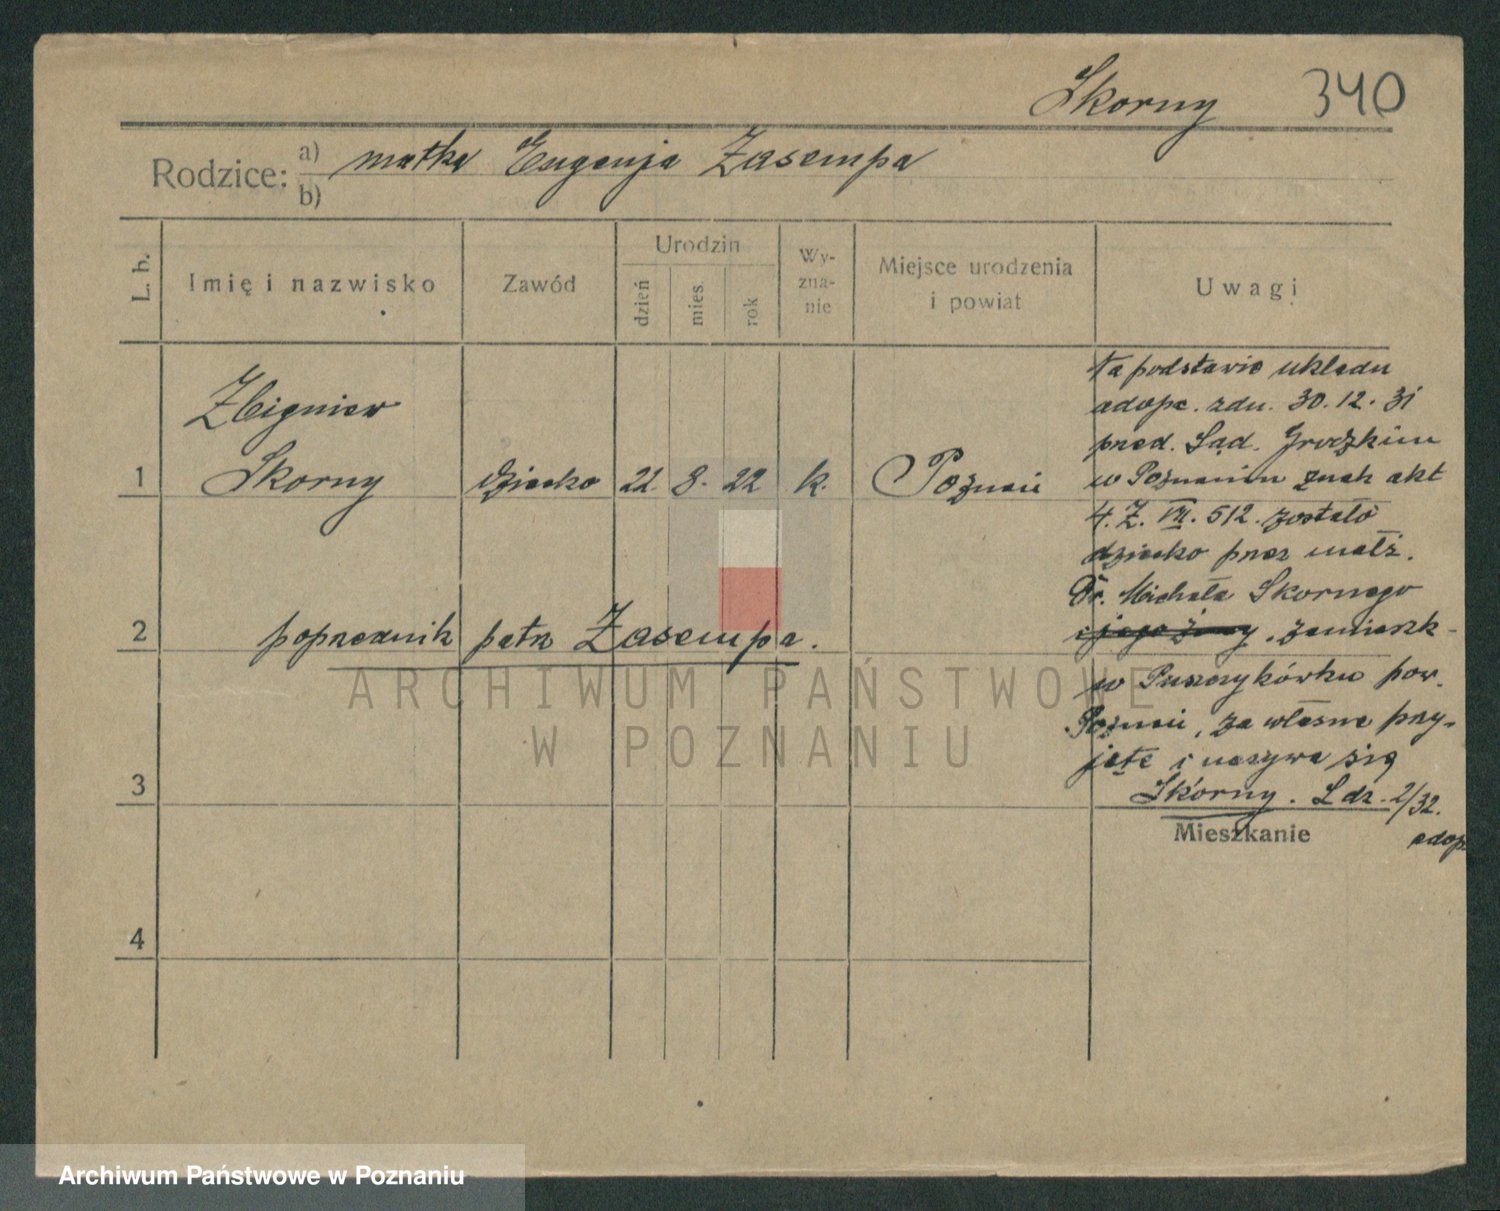 Skorny 340
Rodzice: a) matka Eugenja Zasempa
b)
L. b. Imię i nazwisko Zawód Urodzin dzień mies. rok Wy-zna-nie Miejsce urodzenia i powiat Uwagi
Zbigniew
1 Skorny dziecko 22. 8. 22 k. Poznań
2 poprzednik patrz Zasempa.
3
4
Na podstawie układu
adopc. zdn. 30.12.31
przed. Sąd. Grodzkim
w Poznaniu znak akt
4. Z. VII. 512. zostało
dziecko przez małż.
Dr. Michała Skornego
i jego żony, zamieszk-
w Puszczykówku pow.
Poznań, za własne przy-
jęte i nazywa się
Skorny. Ldz. 2/32.
adop.
Mieszkanie
ARCHIWUM PAŃSTWOWE
W POZNANIU
Archiwum Państwowe w Poznaniu